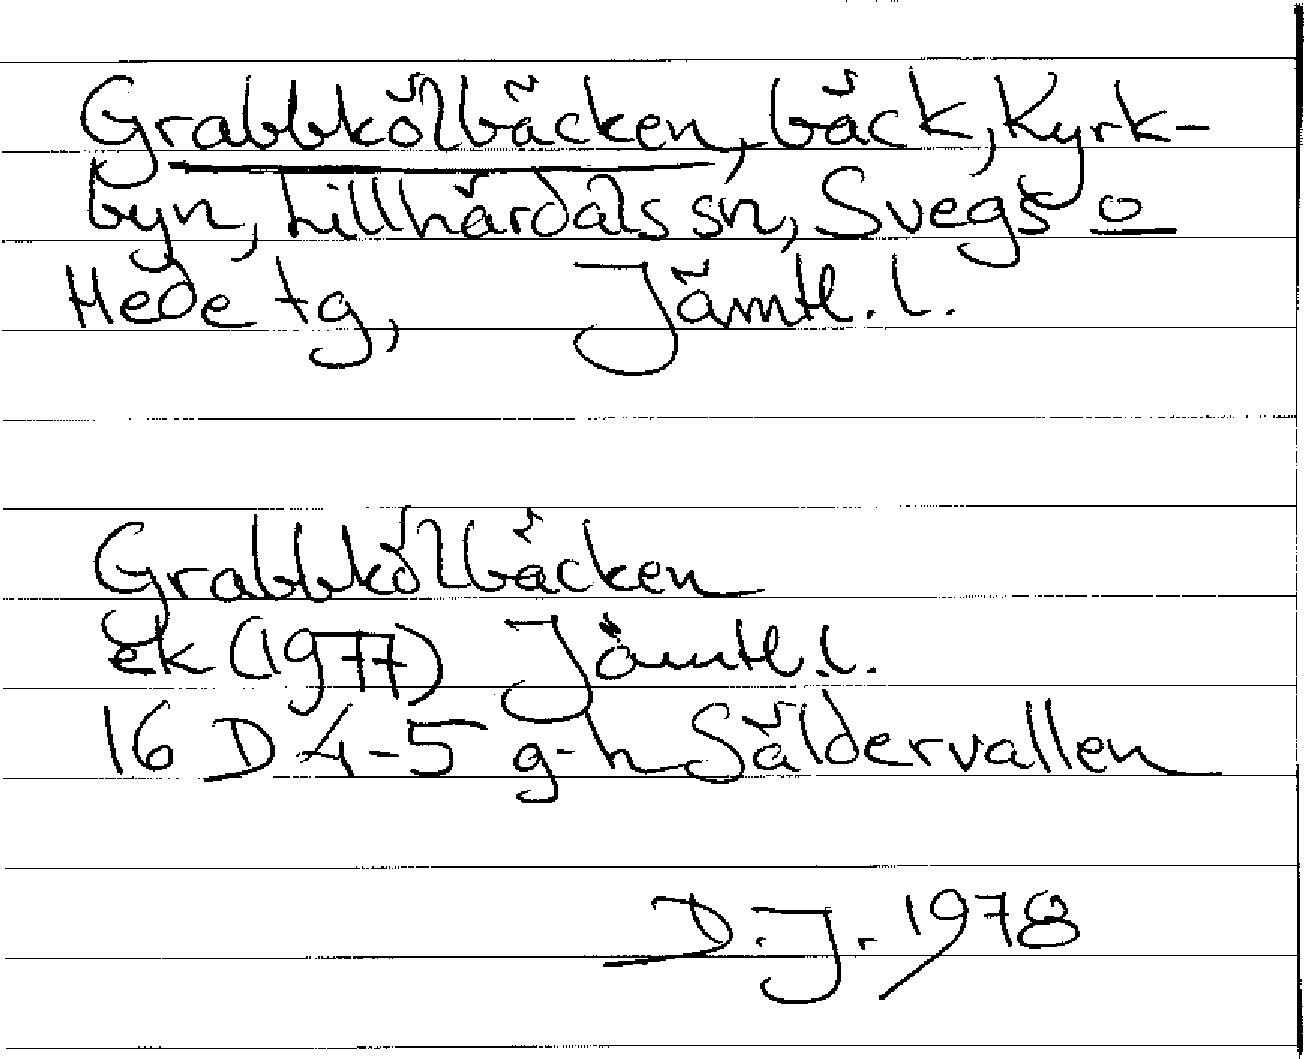 Grabbkölbäcken, bäck, Kyrk-
byn, Lillhärdals sn, Svegs o
Hede tg, Jämtl. l.
Grabbkölbäcken
ek (1977) Jämtl. l.
16 D 4-5 g-h Säldervallen
D. J. 1978